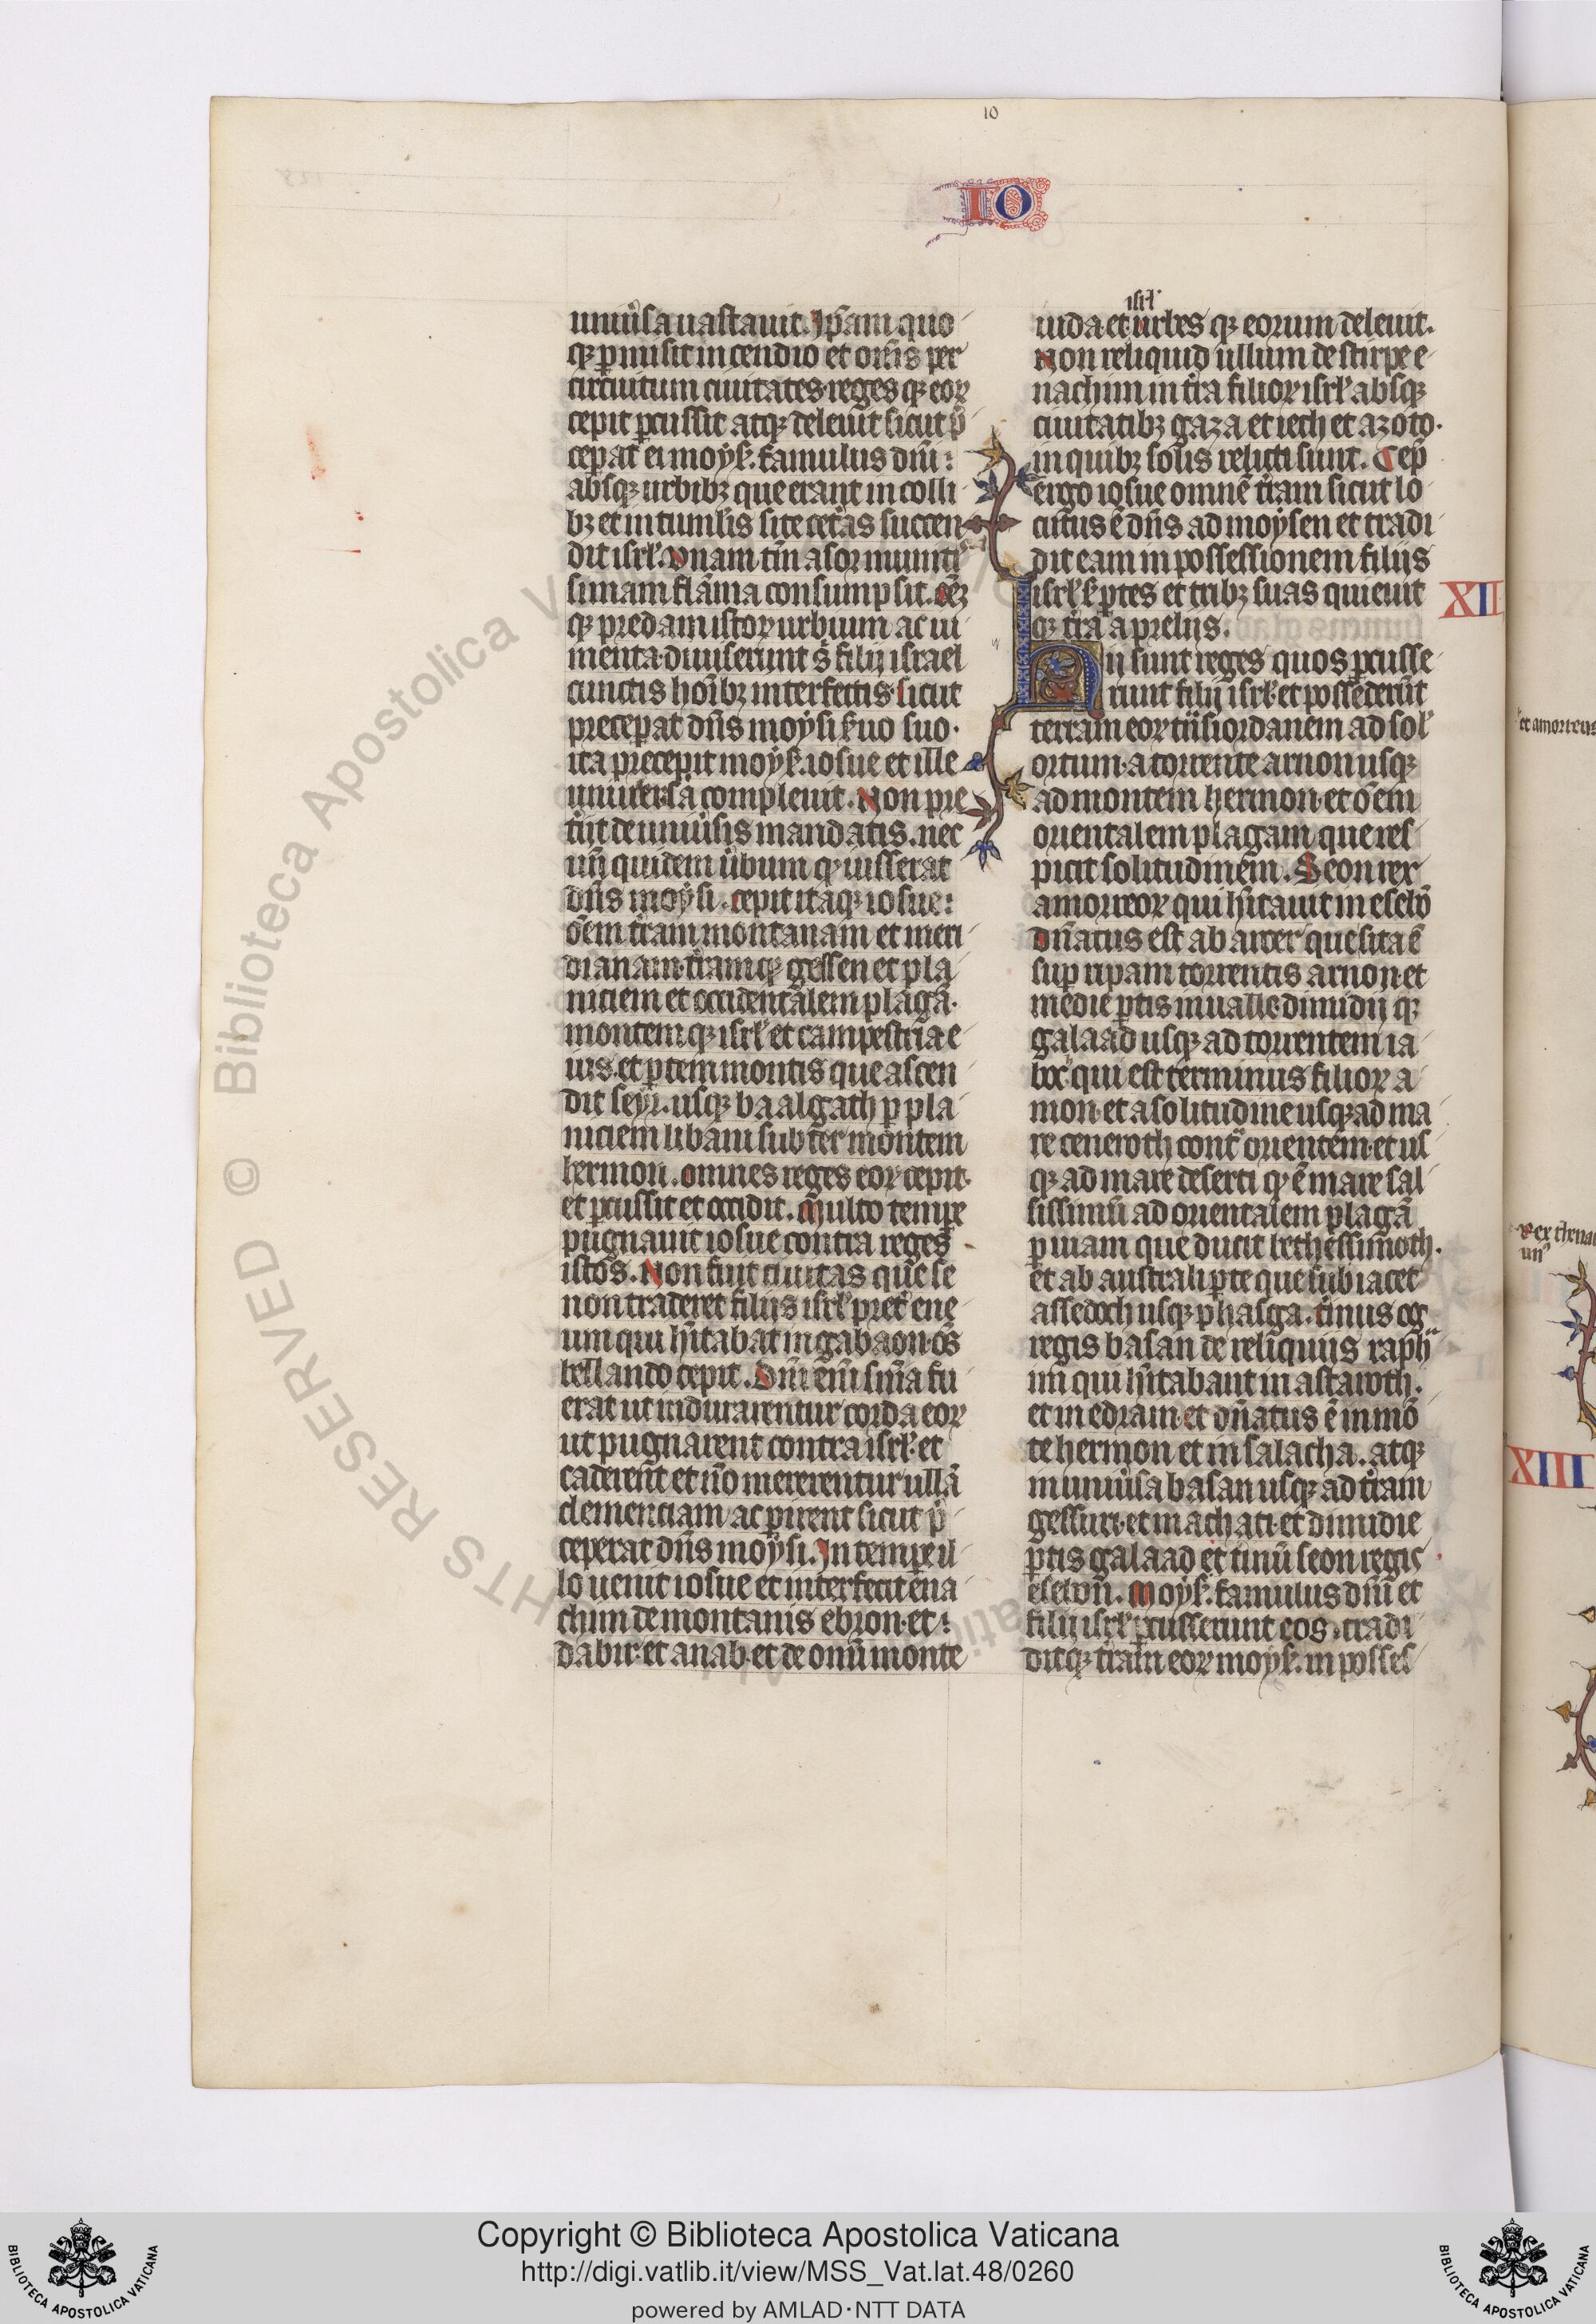 10
IO
uniũsa uastauit. Ip̃am quo
qꝫ ꝑmisit incendio et om̃s per
circuitum ciuitates. reges qꝫ eoꝝ
cepit ꝑcussit atqꝫ deleuit sicut p̃
ceperat ei moyẜ. famulus dñi:
absqꝫ urbibꝫ que erant in colli
bꝫ et in tumulis site cet̃as succen
dit isrl̓. Vnam tm̃ asor muniti
simam flãma consumpsit. Oẽꝫ
qꝫ predam istoꝝ urbium ac iu
menta diuiserunt s̓ filij israel
cunctis hoĩbꝫ interfectis. sicut
preceperat dñs moysi ẜuo suo.
ita precepit moyẜ. iosue et ille
uniuersa compleuit. Non pre
t̃iit de uniũsis mandatis. nec
unũ quidem ũbum qͥ iusserat
dñs moysi. cepit itaqꝫ iosue:
õem t̃ram montanam et meri
dianam. t̃ramqꝫ gessen et pla
niciem et occidentalem plagã.
montemqꝫ isrl̓ et campestria e
ius. et ꝑtem montis que ascen
dit seyr. usqꝫ baalgath ꝑ pla
niciem libani subter montem
hermon. omnes reges eoꝝ cepit.
et ꝑcussit et occidit. Multo tempe
pugnauit iosue contra reges
istos. Non fuit ciuitas que se
non traderet filijs isrl̓ pret̃ eue
um qui hĩtabat in gabaon. oẽs
bellando cepit. Dñi em̃ sñia fu
erat ut indurarentur corda eoꝝ
ut pugnarent contra isrl̓. et
caderent et nõ mererentur ullã
clemenciam ac ꝑirent sicut p̃
ceperat dñs moysi. In tempe il
lo uenit iosue et interfecit ena
chim de montanis ebron. et:
dabir. et anab. et de omĩ monte
isrl̓
iuda et urbes qꝫ eorum deleuit.
Non reliquid ullum de stirpe e
nachim in t̃ra filioꝝ isrl̓ absqꝫ
ciuitatibꝫ gaza et iech et azoto.
in quibꝫ solis relicti sunt. Cep̃
ergo iosue omnẽ t̃ram sicut lo
cutus ẽ dñs ad moysen et tradi
dit eam in possessionem filijs
isrl̓ ẜ ꝑtes et tribꝫ suas quieuit
qꝫ t̃ra a prelijs.
XII
Hij sunt reges quos ꝑcusse
runt filij isrl̓ et possederũt
terram eoꝝ t̃nsiordanem ad sol̓
ortum. a torrente arnon usqꝫ
ad montem hermon. et õem
orientalem plagam que res
picit solitudinem. Seon rex
amorreoꝝ qui hĩtauit in esebõ
Dñatus est ab aroer que sita ẽ
suꝑ ripam torrentis arnon. et
medie ꝑtis in ualle. dimidij qꝫ
galaad usqꝫ ad torrentem ia
boc. qui est terminus filioꝝ a
mon. et a solitudine usqꝫ ad ma
re ceneroth cont̃ orientem. et us
qꝫ ad mare deserti qͥ ẽ mare sal
sissimũ ad orientalem plagã
ꝑ uiam que ducit bethessimoth.
et ab australi ꝑte que subiacet
assedoch usqꝫ phasga. t̃inus og
regis basan de reliquijs raph
im qui hĩtabant in astaroth.
et in edrain. et dñatus ẽ in mõ
te hermon et in salacha. atqꝫ
in uniũsa basan usqꝫ ad t̃ram
gessuri. et machati. et dimidie
ꝑtis galaad et t̃inũ seon regis
esebon. Moyẜ. famulus dñi et
filij isrl̓ ꝑcusserunt eos. tradi
ditqꝫ t̃ram eoꝝ moyẜ. in posses
et amorreus
Rex
XIII
© Biblioteca Apostolica
RIGHTS RESERVED
Copyright © Biblioteca Apostolica Vaticana
http://digi.vatlib.it/view/MSS_Vat.lat.48/0260
powered by AMLAD·NTT DATA
BIBLIOTECA APOSTOLICA VATICANA
BIBLIOTECA APOSTOLICA VATICANA